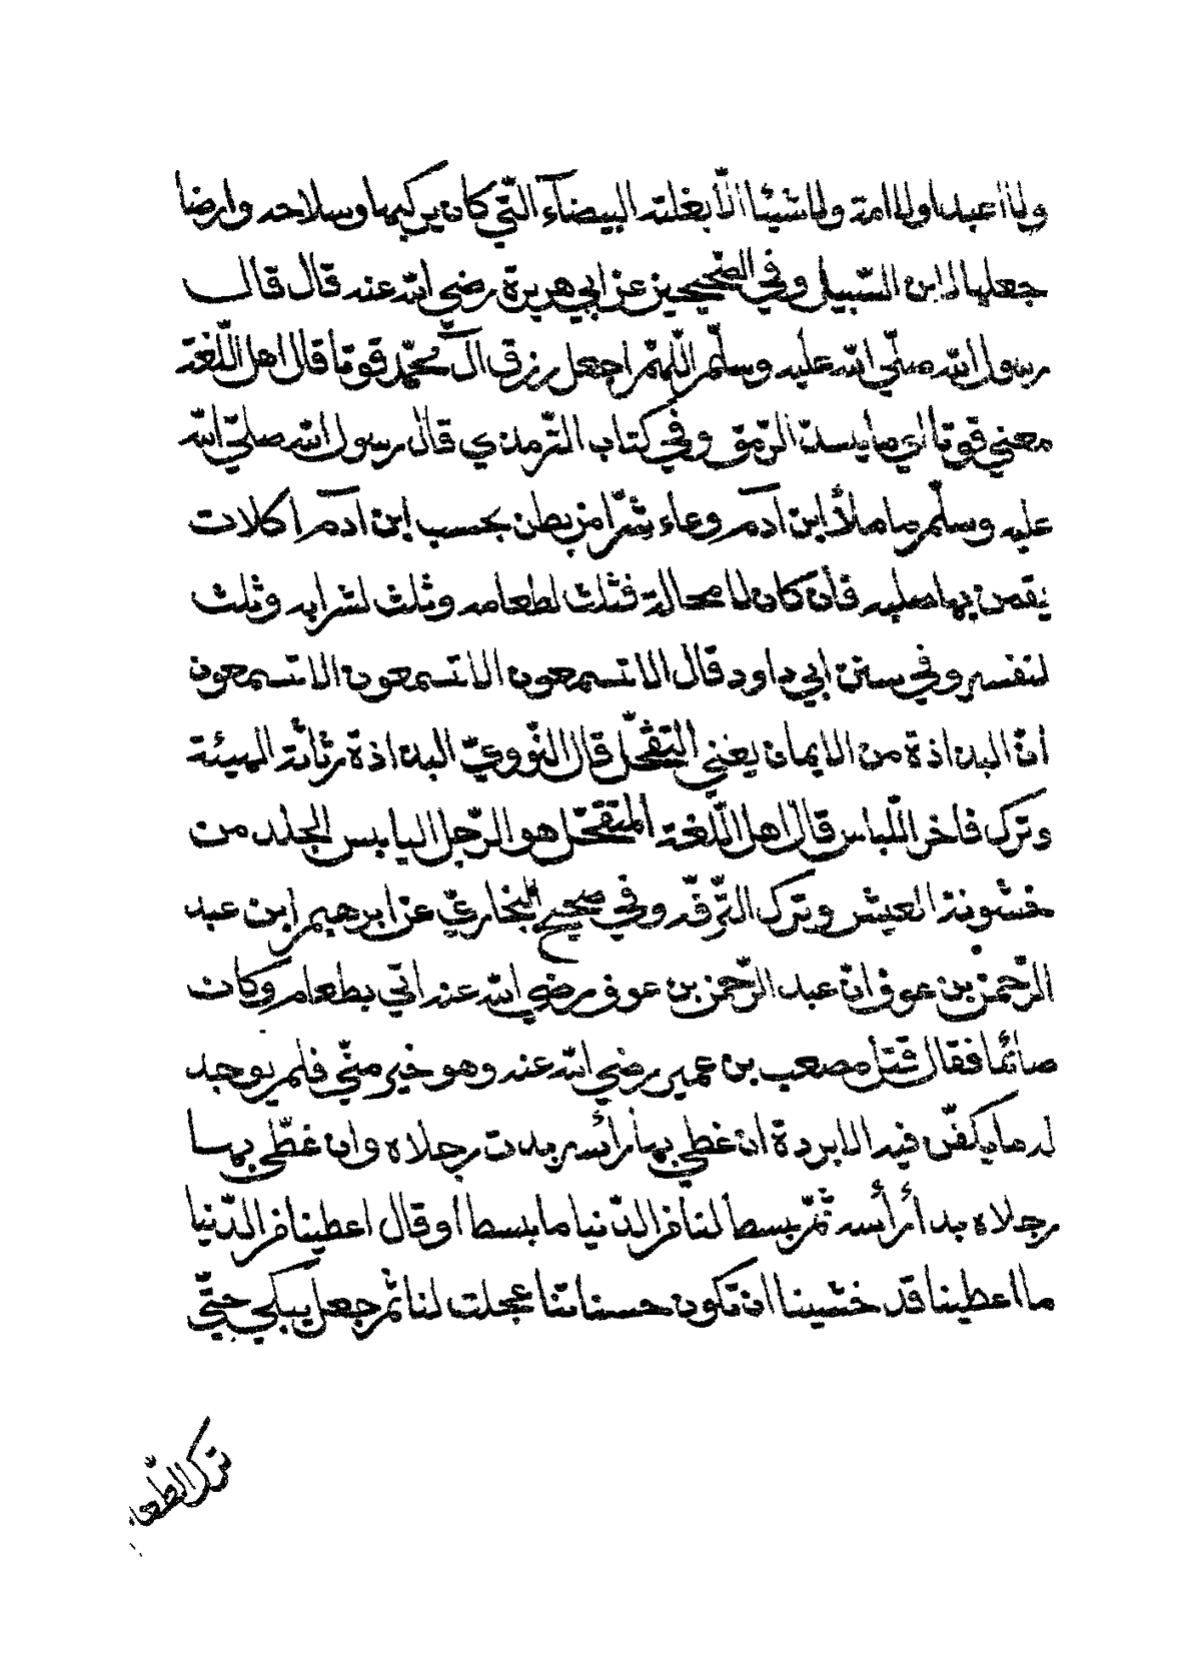 ولا عبدا ولا امة ولا شيئا الّا بغلته البيضآء الّتي كان يركبها وسلاحه وارضا
جعلها لابن السّبيل وفي الصّحيحين عن ابي هريرة رضي الله عنه قال قال
رسول الله صلّي الله عليه وسلّم اللّهمّ اجعل رزق آل محمّد قوتا قال اهل اللّغة
معني قوتا اي ما يسدّ الرّمق وفي كتاب التّرمذي قال رسول الله صلّي الله
عليه وسلّم ما ملأ ابن آدم وعاء شرّا من بطن بحسب ابن آدم اكلات
يقمن بها صلبه فأن كان لا محالة فثلث لطعامه وثلث لشرابه وثلث
لنفسه وفي سنن ابي داود قال الا تسمعون الا تسمعون
انّ البذاذة من الايمان يعني التقحّل قال النّوويّ البذاذة رثاثة الهيئة
وترك فاخر اللّباس قال اهل اللّغة المتقحّل هو الرّجل اليابس الجلد من
خشونة العيش وترك التّرفّه وفي صحيح البخاريّ عن ابرهيم ابن عبد
الرّحمن بن عوف انّ عبد الرّحمن بن عوف رضي الله عنه اتي بطعام وكان
صائما فقال قتل مصعب بن عمير رضي الله عنه وهو خير منّي فلم يوجد
له ما يكفّن فيه الا بردة ان غطي بها رأسه بدت رجلاه وان غطّي بها
رجلاه بدأ رأسه ثمّ بسط لنا من الدّنيا ما بسط او قال اعطينا من الدّنيا
ما اعطينا قد خشينا ان تكون حسناتنا عجلت لنا ثم جعل يبكي حتّي
ترك الطّعا